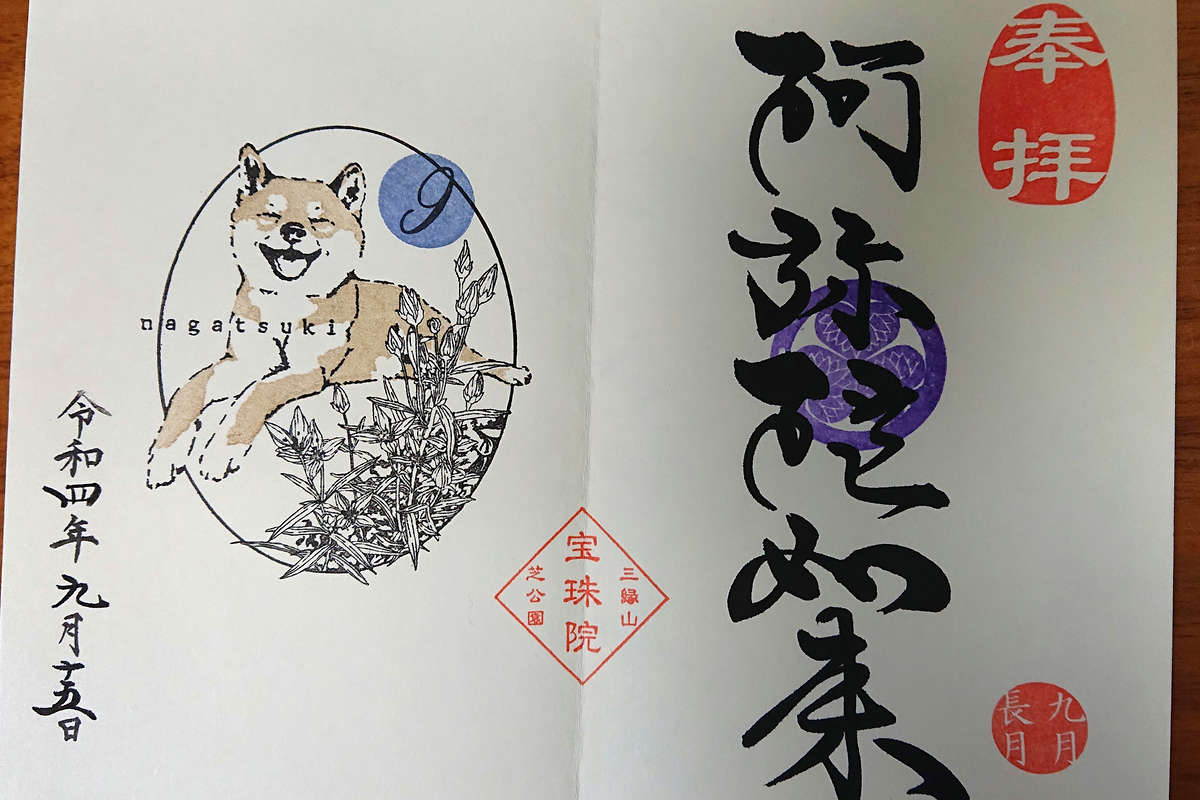 奉拝
阿弥陀如来
九月
長月
三縁山
宝珠院
芝公園
9
nagatsuki
令和四年九月十五日